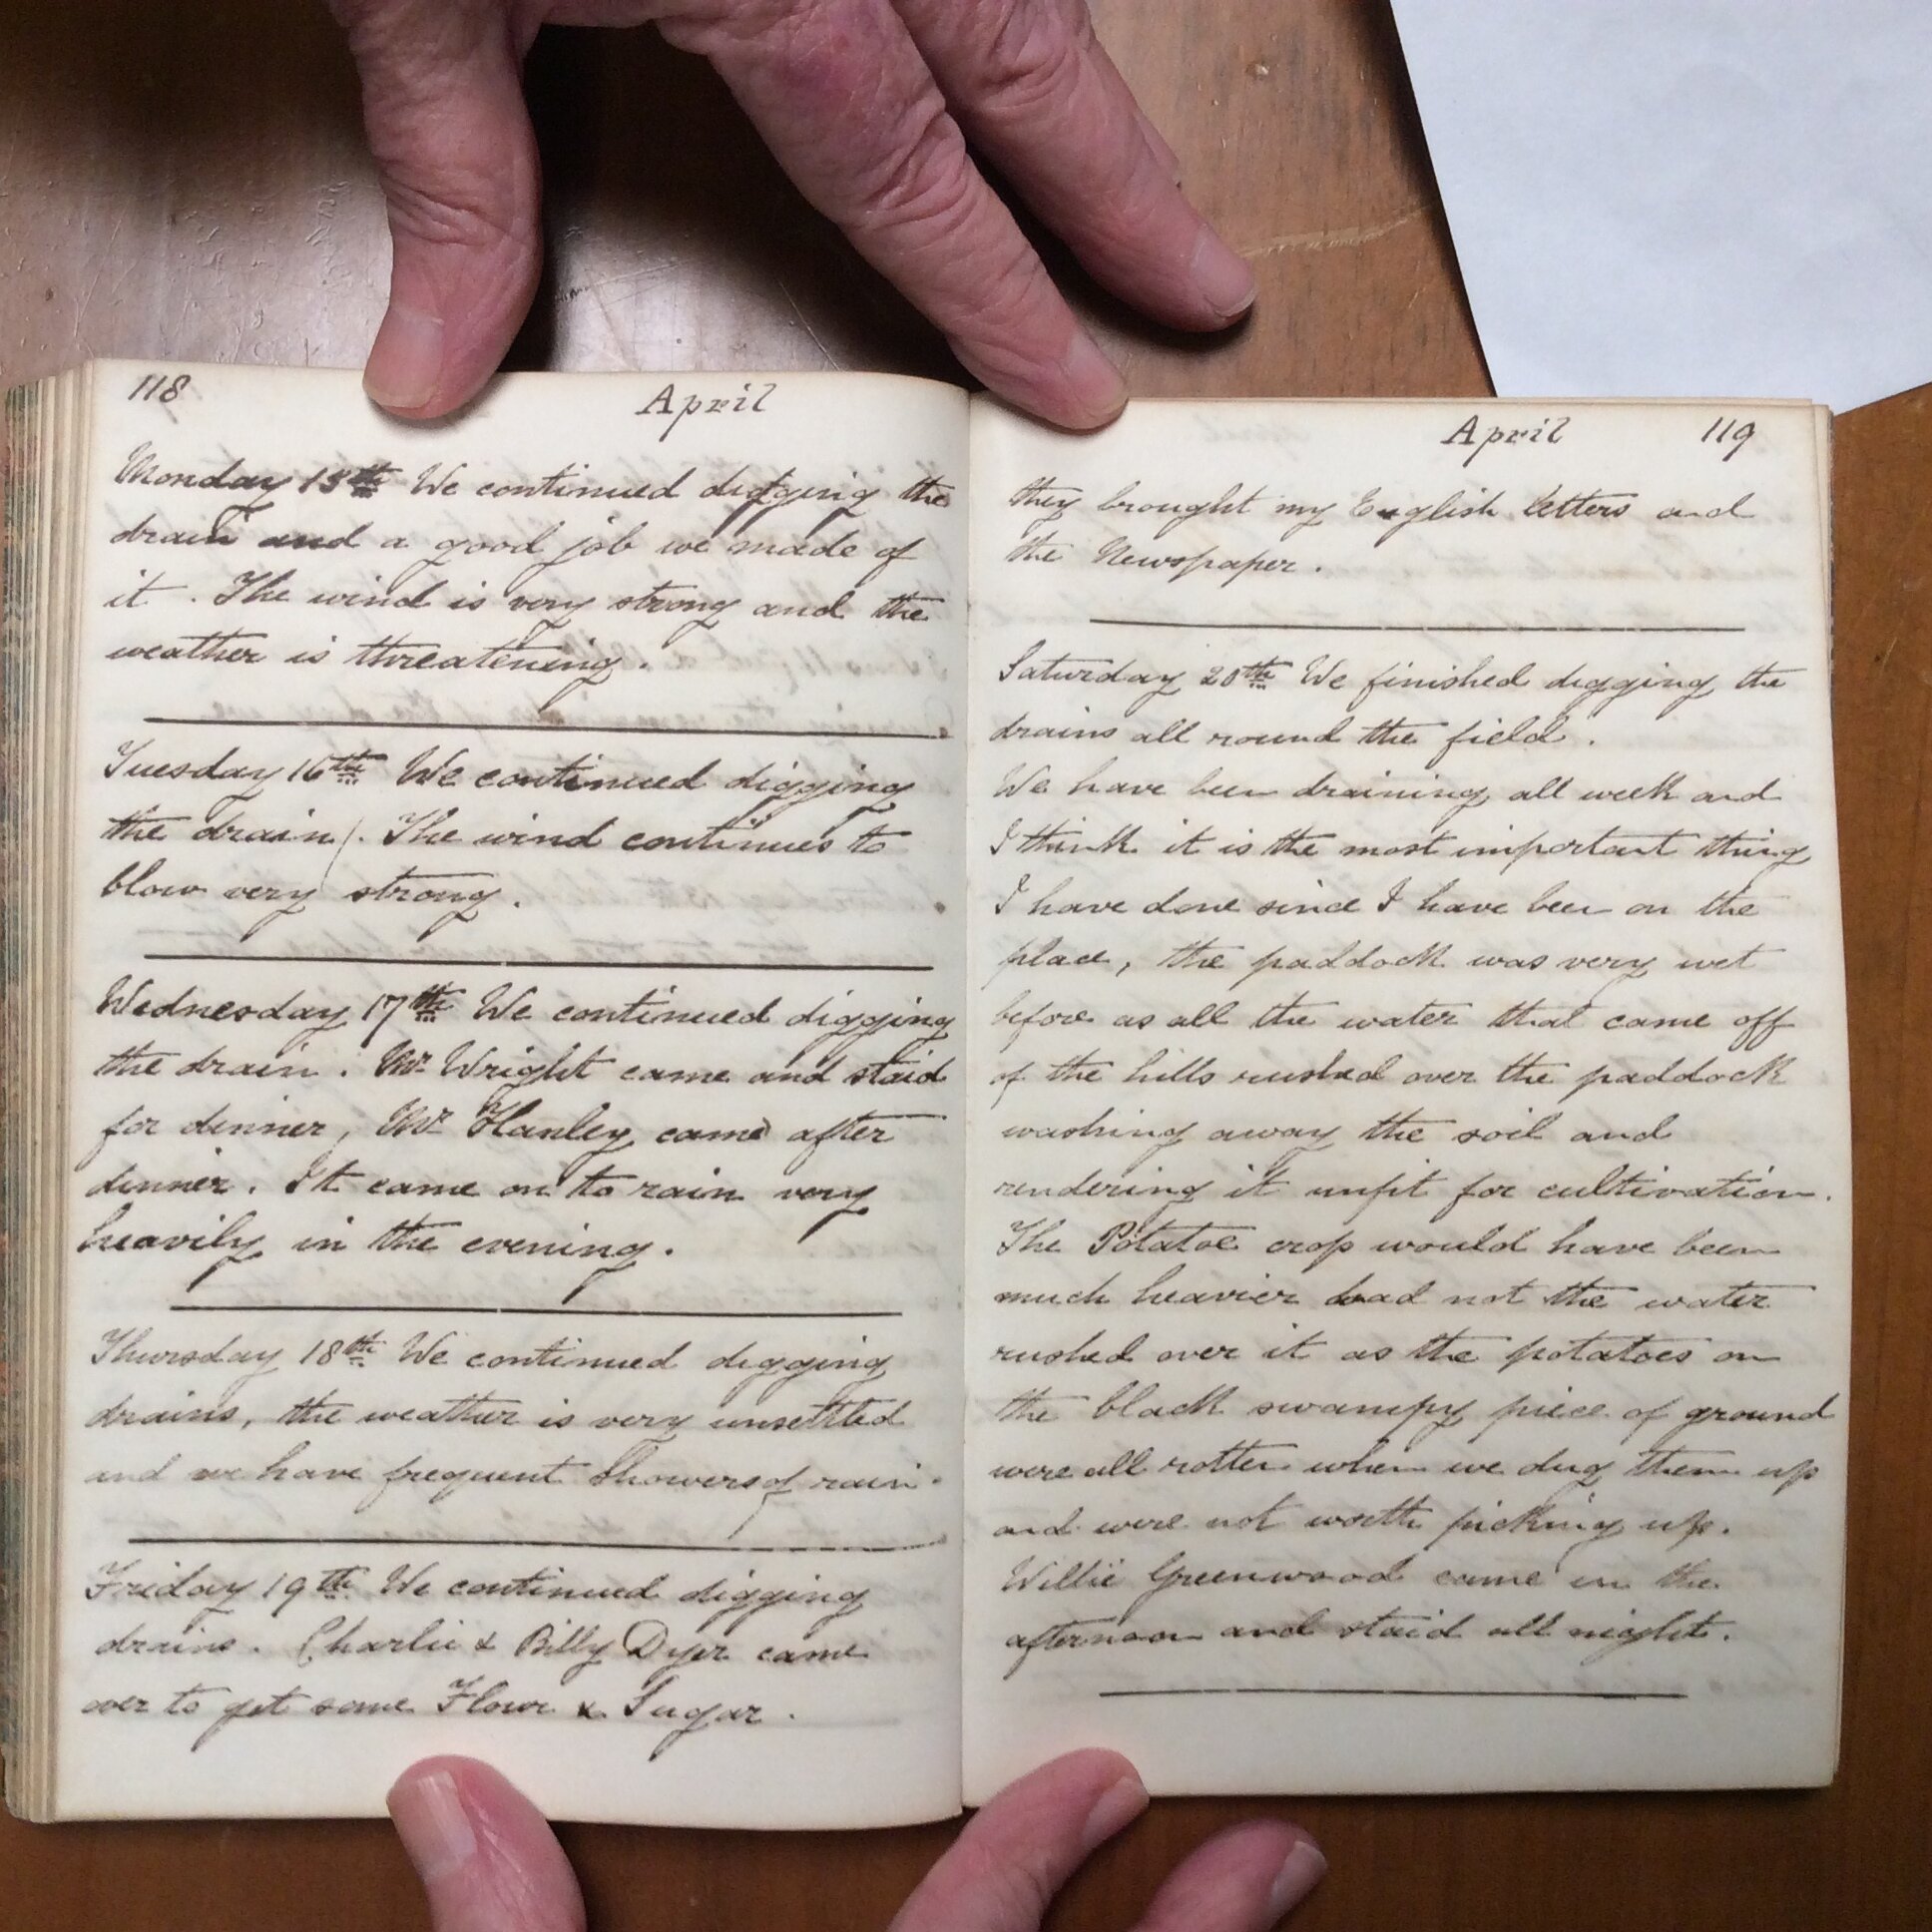 118 April
Monday 15th We continued digging the
drain and a good job we made of
it. The wind is very strong and the
weather is threatening.
Tuesday 16th We continued digging
the drain. The wind continues to
blow very strong.
Wednesday 17th We continued digging
the drain. Mr Wright came and staid
for dinner, Mr Hanley came after
dinner. It came on to rain very
heavily in the evening.
Thursday 18th We continued digging
drains, the weather is very unsettled
and we have frequent Showers of rain.
Friday 19th We continued digging
drains. Charlie & Billy Dyer came
over to get some Flour & Sugar.
April 119
they brought my English letters and
the Newspaper.
Saturday 20th We finished digging the
drains all round the field.
We have been draining all week and
I think it is the most important thing
I have done since I have been on the
place, the paddock was very wet
before as all the water that came off
of the hills rushed over the paddock
washing away the soil and
rendering it unfit for cultivation.
The Potatoe crop would have been
much heavier had not the water
rushed over it as the potatoes on
the black swampy piece of ground
were all rotten when we dug them up
and were not worth picking up.
Willie Greenwood came in the
afternoon and staid all night.